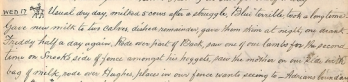 WED 17 Usual dry day, milked 2 cows after a struggle, Blue terrible took a long time
Gave new milk to two calves dished remainder, gave them skim at night, one drank
Friday half a day again, Rode over part of Back, saw one of our lambs for the second
time on Sneek's side of fence amongst his hoggets, saw the mother in our Ride with
bag of milk, rode over Hughes place in our fence wants seeing to - Adrians